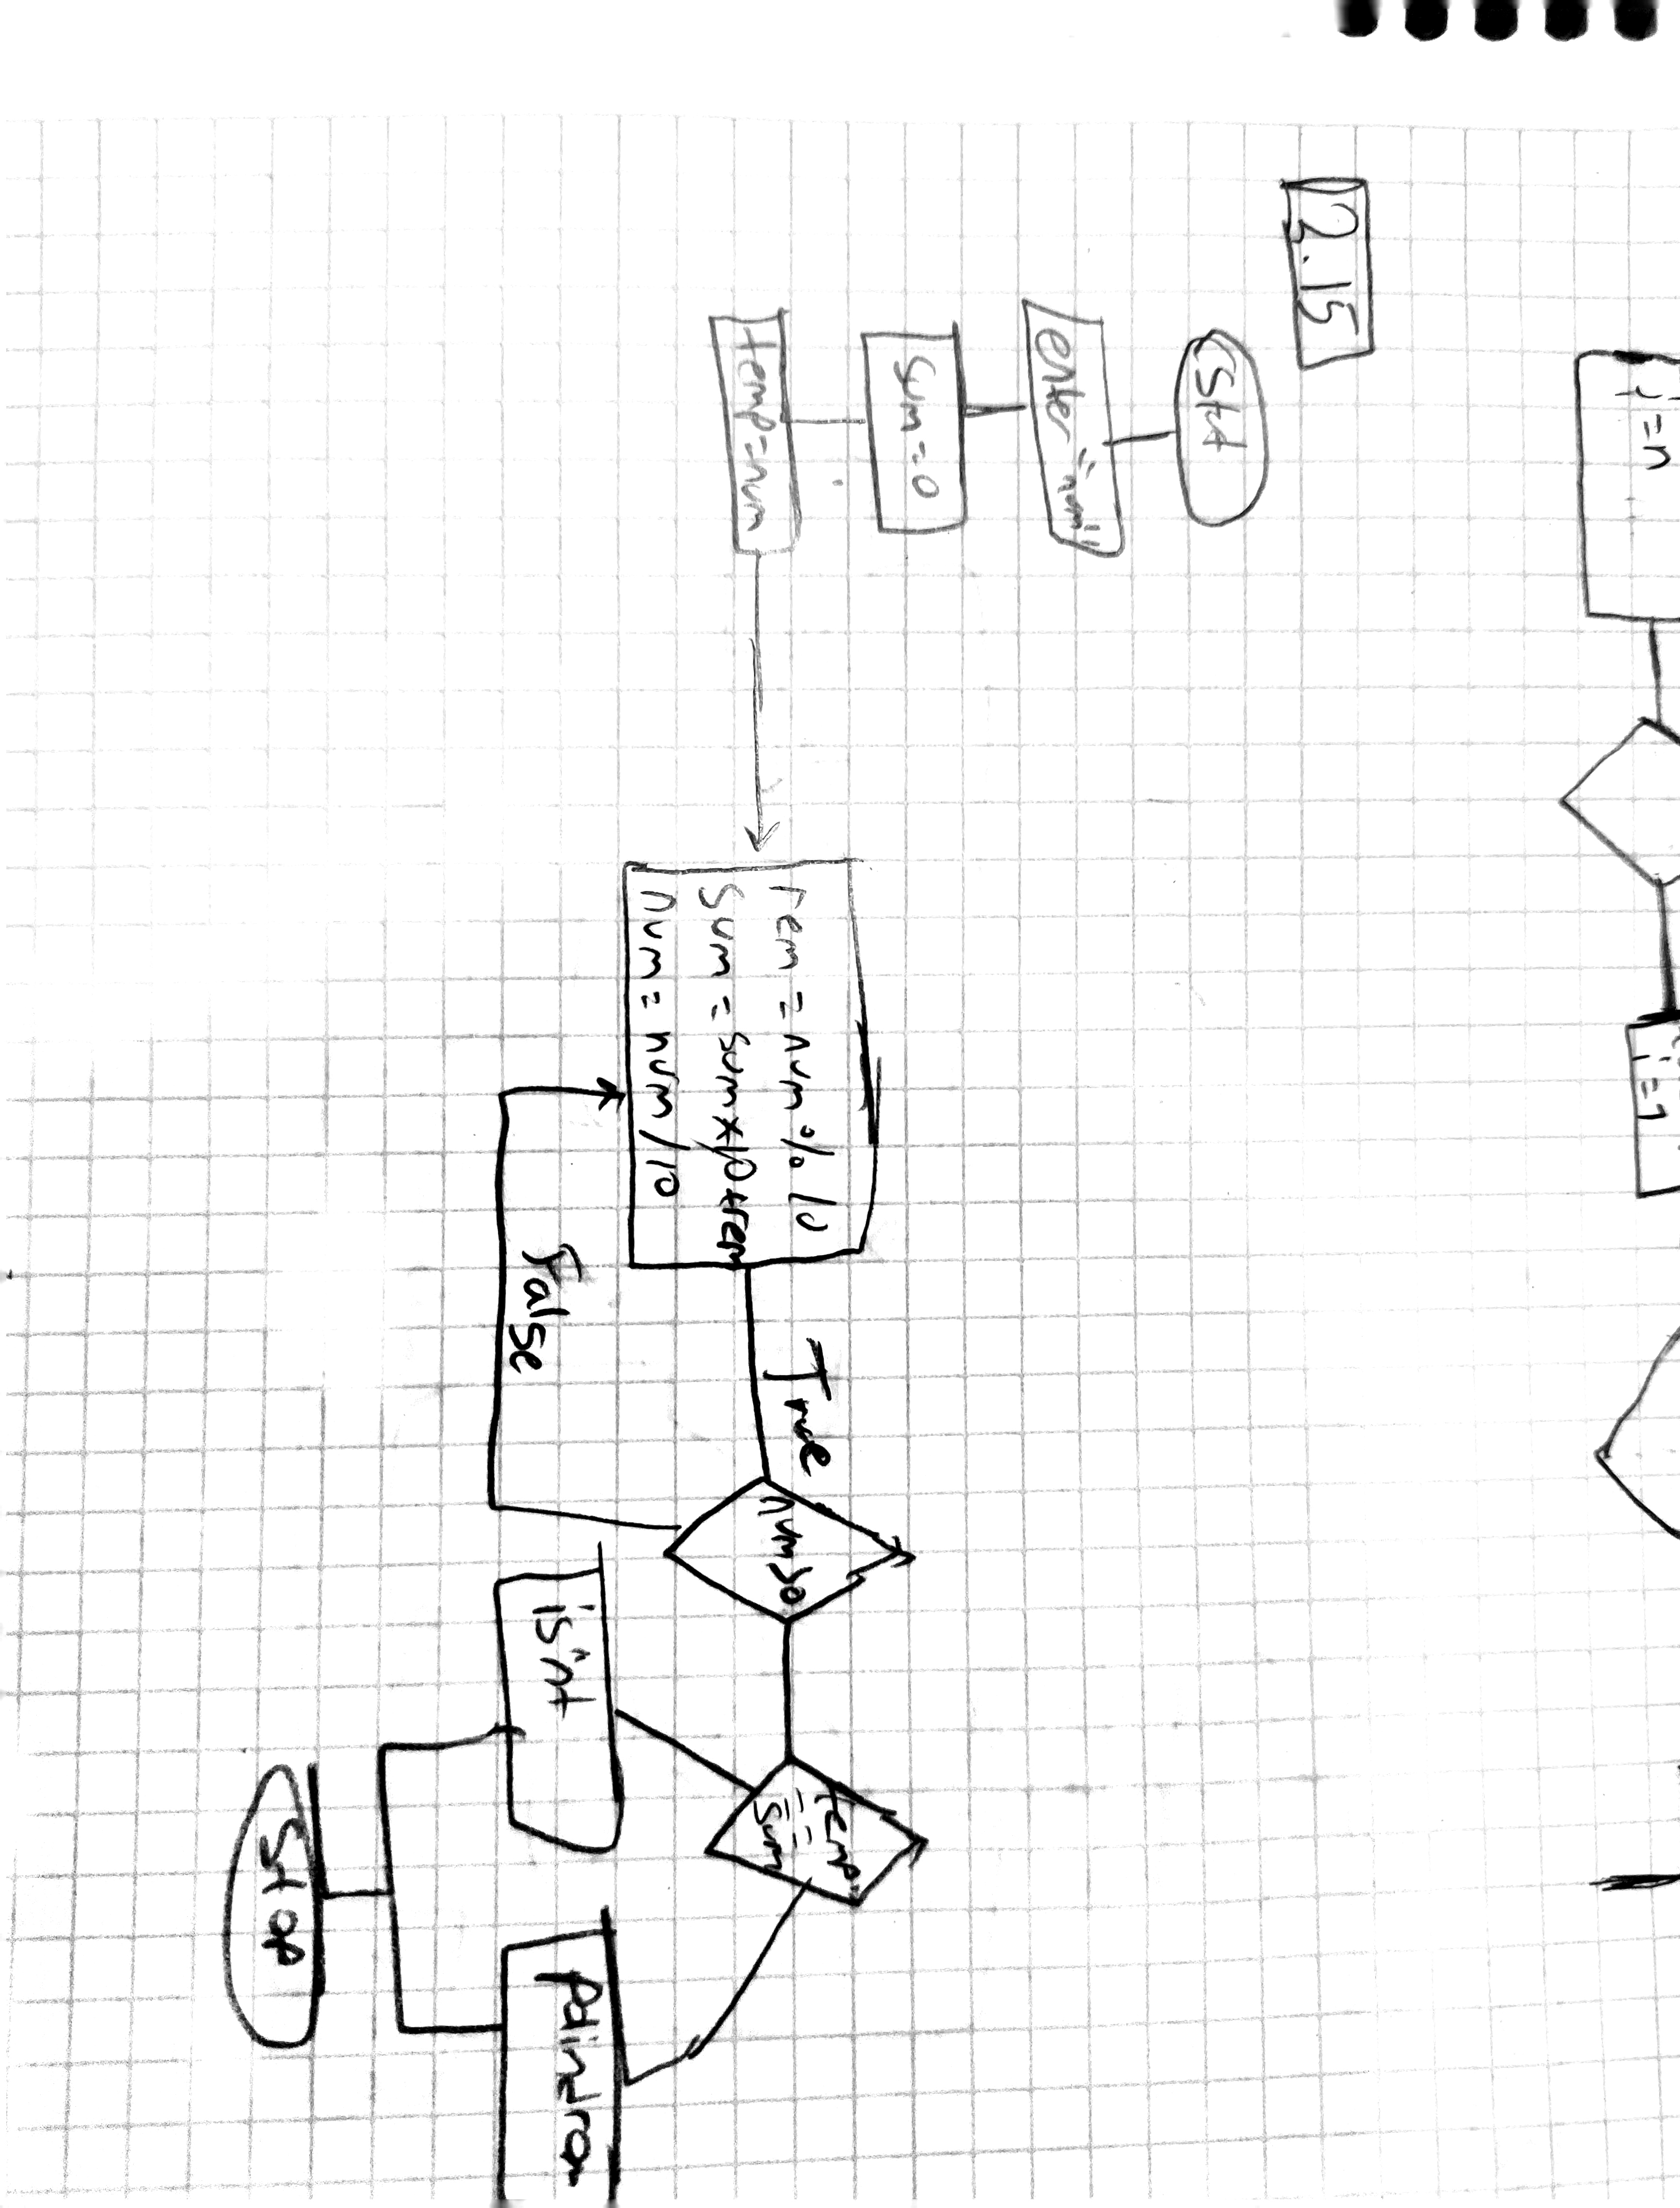 j=n
i=1
2.15
enter "num"
sum=0
temp=num
rem = num % 10
sum = sum*10+rem
num = num/10
True
num>0
temp
==
sum
False
is'nt
Palindrom
Stop